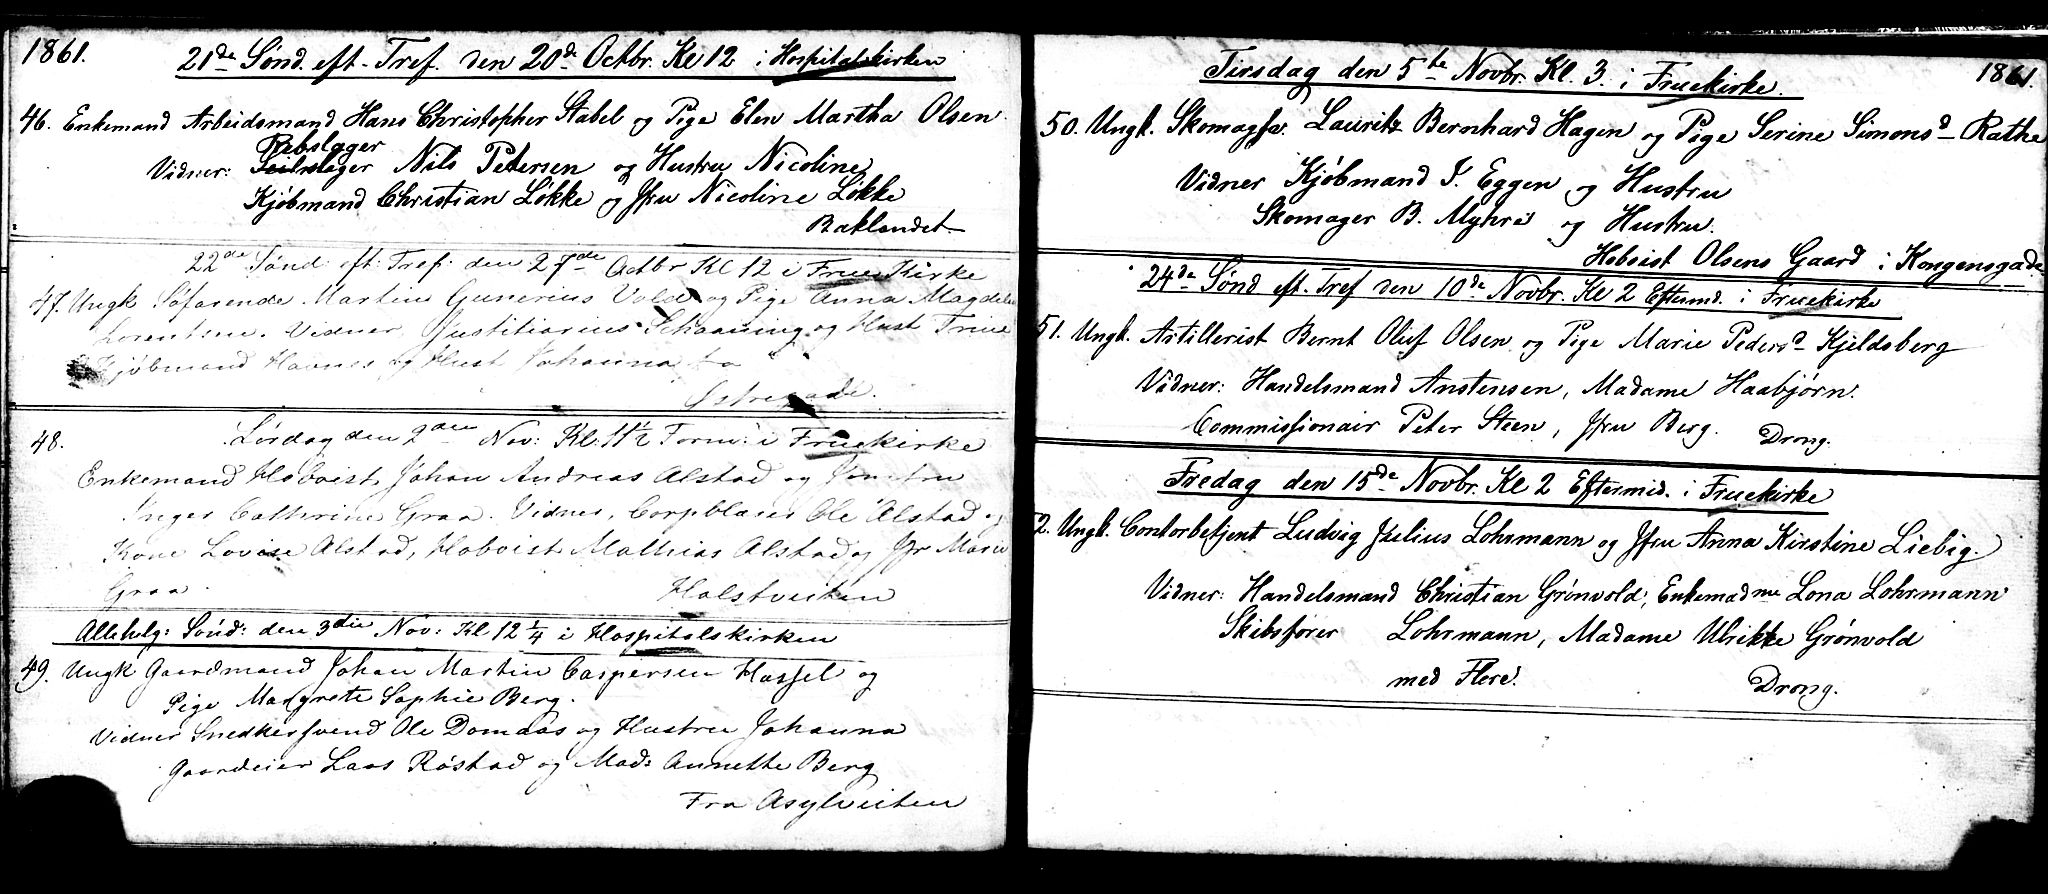 1861.
21de Sønd. eft. Tref. den 20de Octbr. Kl 12 i Hospitalskirken
46. Enkemand Arbeidsmand Hans Christopher Stabel og Pige Elen Martha Olsen.
Rebslager
Vidner: Seilmager Nils Petersen og Hustru Nicoline
Kjøbmand Christian Løkke og Jfru Nicoline Løkke
Baklandet
22de Sønd: eft: Tref: den 27de Octbr Kl 12 i Frue Kirke
47. Ungk Søfarende Martin Gunerius Vold og Pige Anna Magdele
Lorentsen. Vidner, Justitiarius Schaaning og Hust Trine
Kjøbmand Havnes og Hust Johanna fra
Østregade.
48. Lørdag den 2den Nov: Kl. 11½ Form: i Fruekirke
Enkemand Hoboist Johan Andreas Alstad og Jomfru
Inger Cathrine Graa. Vidner, Corpblaser Ole Alstad og
Kone Lovise Alstad, Hoboist Mathias Alstad og Jfr Marie
Graa.
Holstveiten
Allehelg: Sønd: den 3die Nov: Kl 12 ¼ i Hospitalskirken
49. Ungk Gaardmand Johan Martin Caspersen Hassel og
Pige Margrete Sophie Berg.
Vidner Snedkersvend Ole Domaas og Hustru Johanna
Gaardeier Laas Røstad og Mad: Annette Berg
Fra Asylveiten
1861.
Tirsdag den 5te Novbr. Kl. 3. i Fruekirke.
50. Ungk. Skomagsv. Lauritz Bernhard Hagen og Pige Serine Simonsd Rathe
Vidner Kjøbmand I. Eggen og Hustru
Skomager B. Myhre og Hustru.
Hoboist Olsens Gaard i Kongensgade
24de Sønd eft. Tref den 10de Novbr. Kl 2 Eftermd. i Fruekirke
51. Ungk. Artillerist Bernt Oluf Olsen og Pige Marie Pedersd Kjeldsberg
Vidner: Handelsmand Anstensen, Madame Haabjørn.
Commissionair Peter Steen, Jfru Berg.
Drong.
Fredag den 15de Novbr. Kl 2 Eftermid. i Fruekirke
2. Ungk. Contorbetjent Ludvig Julius Lohrmann og Jfru Anna Kirstine Liebig.
Vidner: Handelsmand Christian Grønvold, Enkemadme Lona Lohrmann
Skibsfører Lohrmann, Madame Ulrikke Grønvold
med Flere.
Drong.